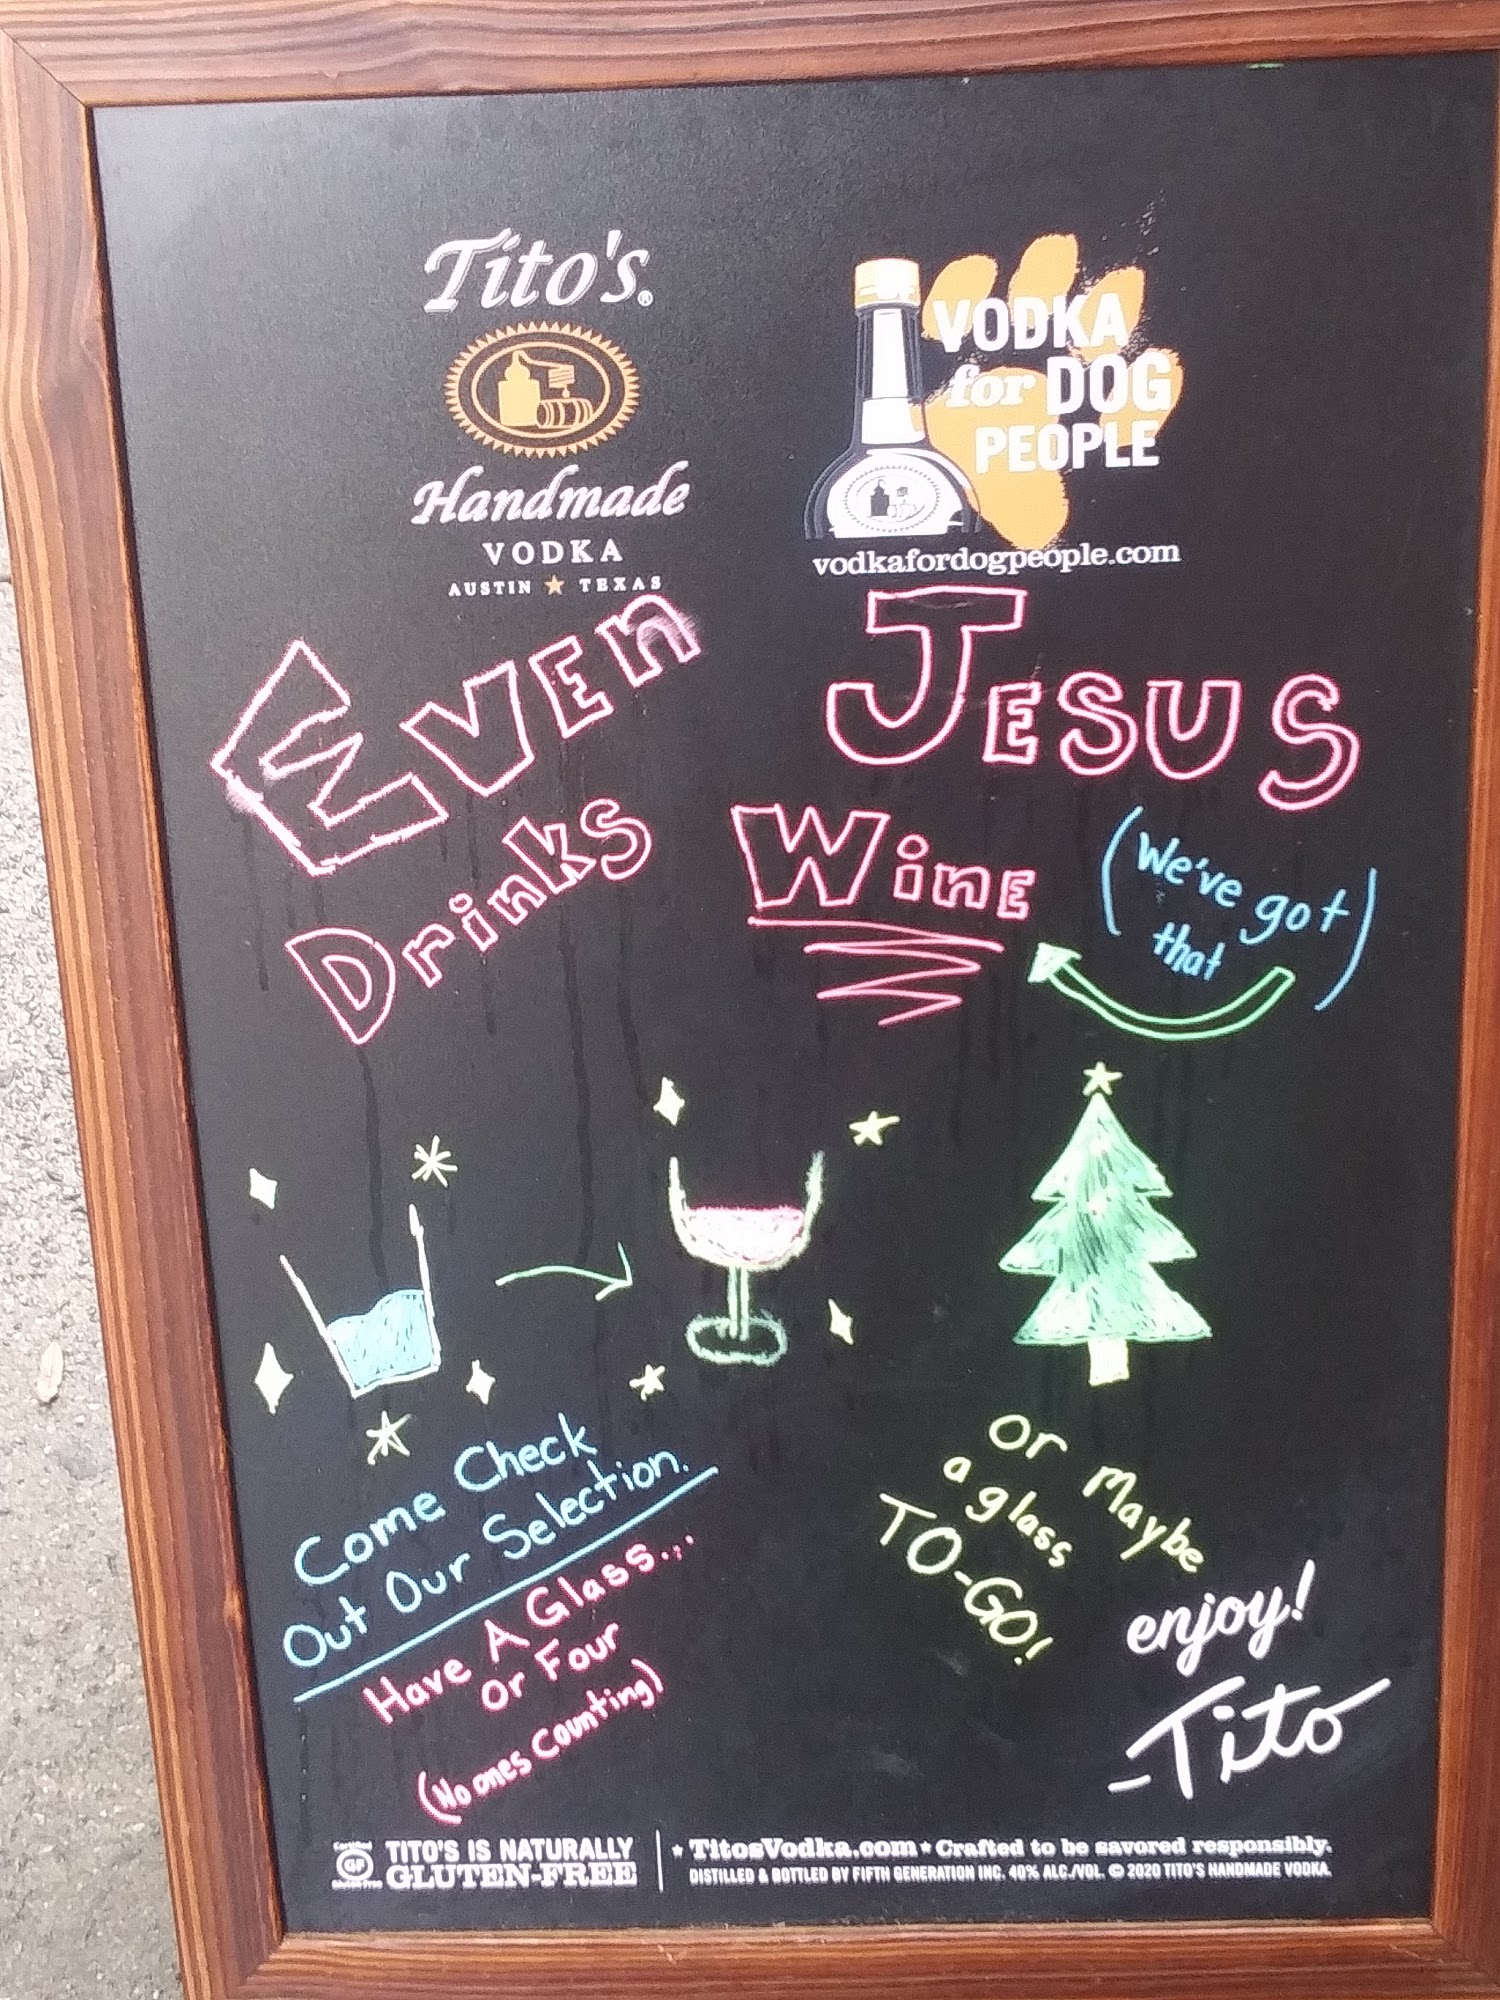 Tito's®
Handmade
VODKA
AUSTIN ★ TEXAS
VODKA
for DOG
PEOPLE
vodkafordogpeople.com
Even Jesus
Drinks Wine
(We've got
that)
Come Check
Out Our Selection.
Have A Glass...
Or Four
(No ones Counting)
Or Maybe
a glass
TO-GO!
enjoy!
-Tito
Certified
GF
Gluten-Free
TITO'S IS NATURALLY
GLUTEN-FREE
★ TitosVodka.com ★ Crafted to be savored responsibly.
DISTILLED & BOTTLED BY FIFTH GENERATION INC. 40% ALC./VOL. © 2020 TITO'S HANDMADE VODKA.